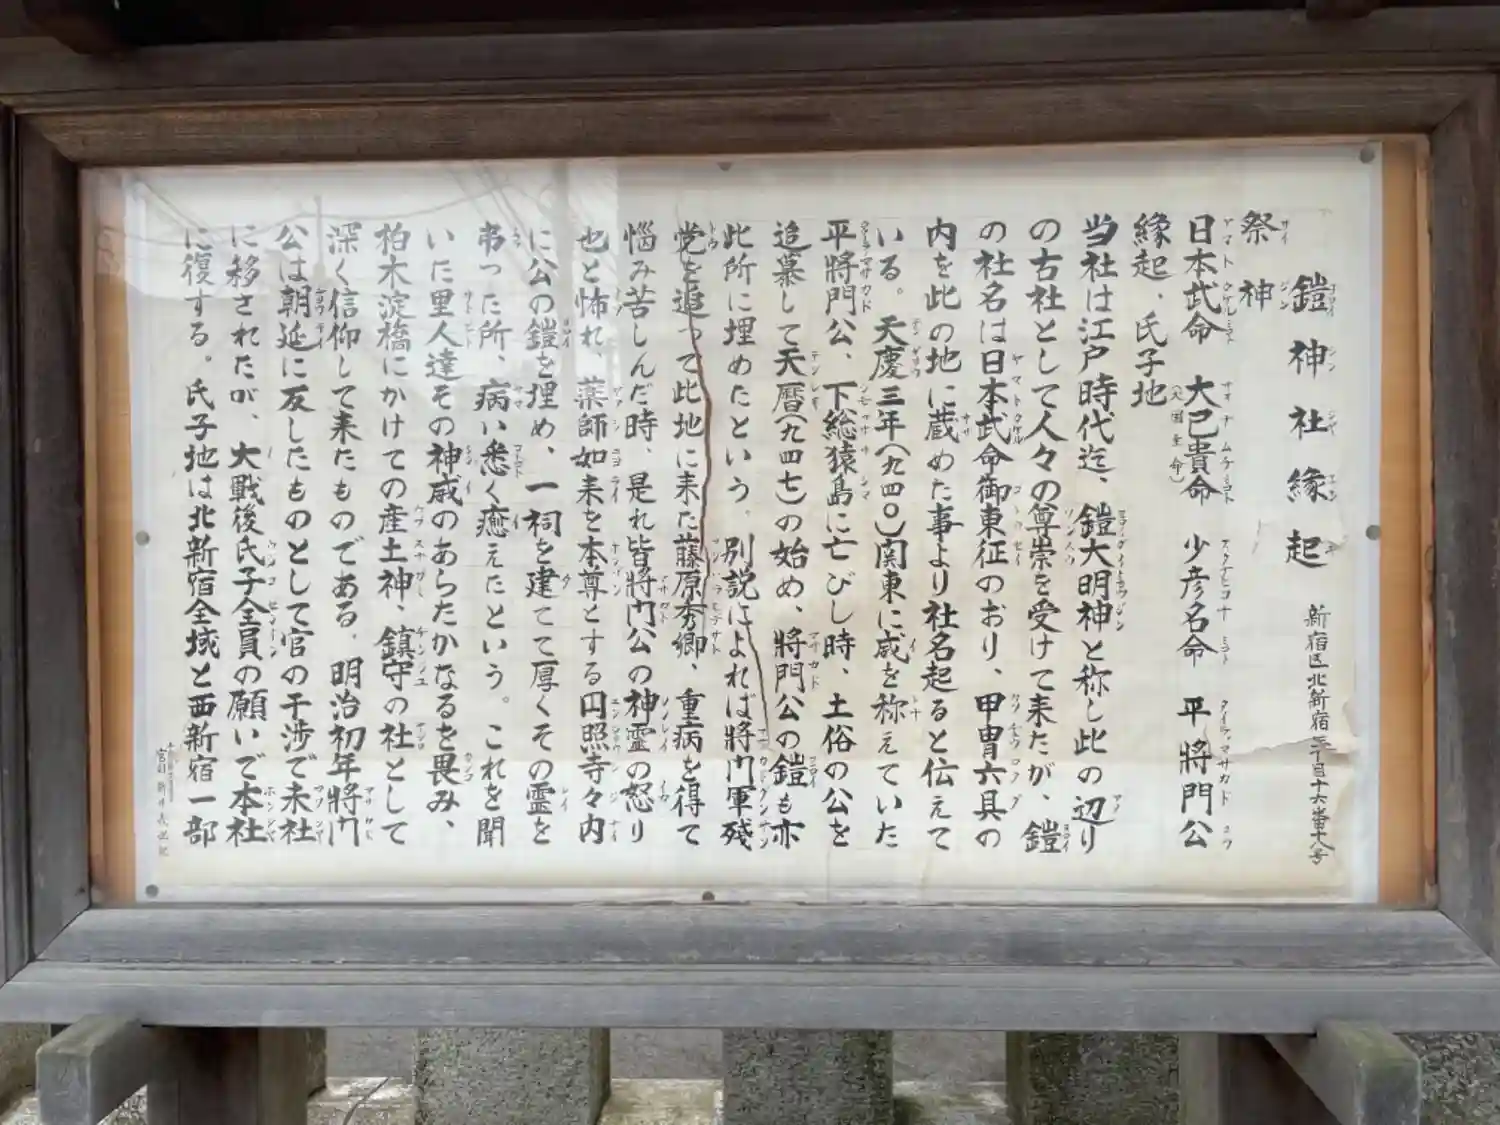 鎧神社縁起 新宿区北新宿三丁目十六番十八号
祭神
日本武命 大己貴命(大国主命) 少彦名命 平將門公
縁起、氏子地
当社は江戸時代迄、鎧大明神と称し此の辺り
の古社として人々の尊崇を受けて来たが、鎧
の社名は日本武命御東征のおり、甲冑六具の
内を此の地に蔵めた事より社名起ると伝えて
いる。天慶三年(九四〇)関東に威を称えていた
平將門公、下総猿島に亡びし時、土俗の公を
追慕して天暦(九四七)の始め、將門公の鎧も亦
此所に埋めたという。別説によれば將門軍残
党を追って此地に来た藤原秀郷、重病を得て
悩み苦しんだ時、是れ皆將門公の神霊の怒り
也と怖れ、薬師如来を本尊とする円照寺々内
に公の鎧を埋め、一祠を建てて厚くその霊を
弔った所、病い悉く癒えたという。これを聞
いた里人達その神威のあらたかなるを畏み、
柏木淀橋にかけての産土神、鎮守の社として
深く信仰して来たものである。明治初年將門
公は朝延に反したものとして官の干渉で末社
に移されたが、大戰後氏子全員の願いで本社
に復する。氏子地は北新宿全域と西新宿一部
宮司